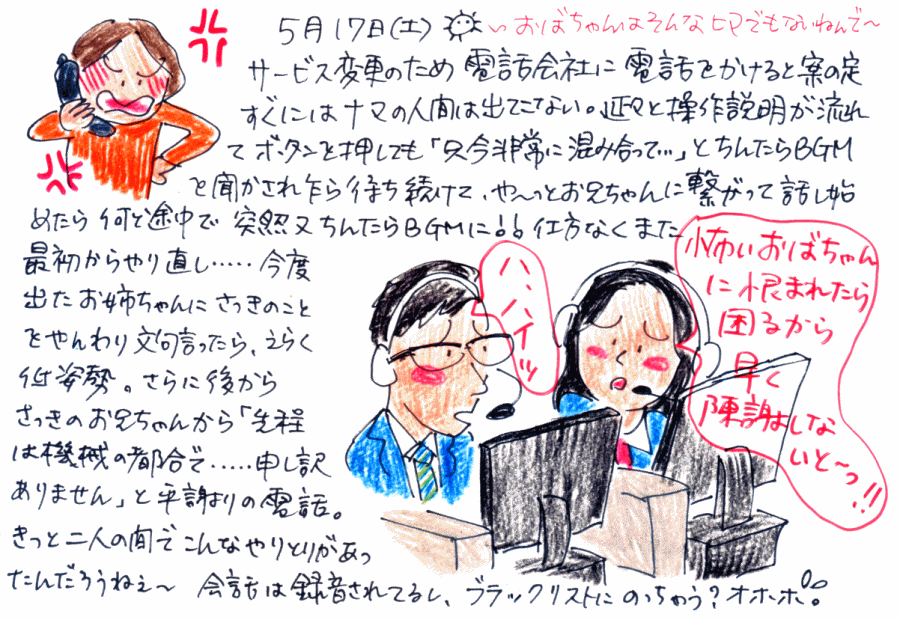 5月17日(土) 〜おばちゃんはそんなヒマでもないねんで〜
サービス変更のため 電話会社に 電話をかけると案の定
すぐにはナマの人間は出てこない。延々と操作説明が流れ
てボタンを押しても「只今非常に混み合って…」とちんたらBGM
を聞かされ乍ら待ち続けて、や〜っとお兄ちゃんに繋がって話し始
めたら何と途中で 突然又ちんたらBGMに!! 仕方なくまた
最初からやり直し……今度
出たお姉ちゃんにさっきのこと
をやんわり文句言ったら、えらく
低姿勢。さらに後から
さっきのお兄ちゃんから「先程
は機械の都合で……申し訳
ありません」と平謝りの電話。
きっと二人の間でこんなやりとりがあっ
たんだろうねぇ〜 会話は録音されてるし、ブラックリストにのっちゃう?オホホ。
ハ、ハイッ
怖いおばちゃん
に恨まれたら
困るから
早く
陳謝しな
いと〜っ!!